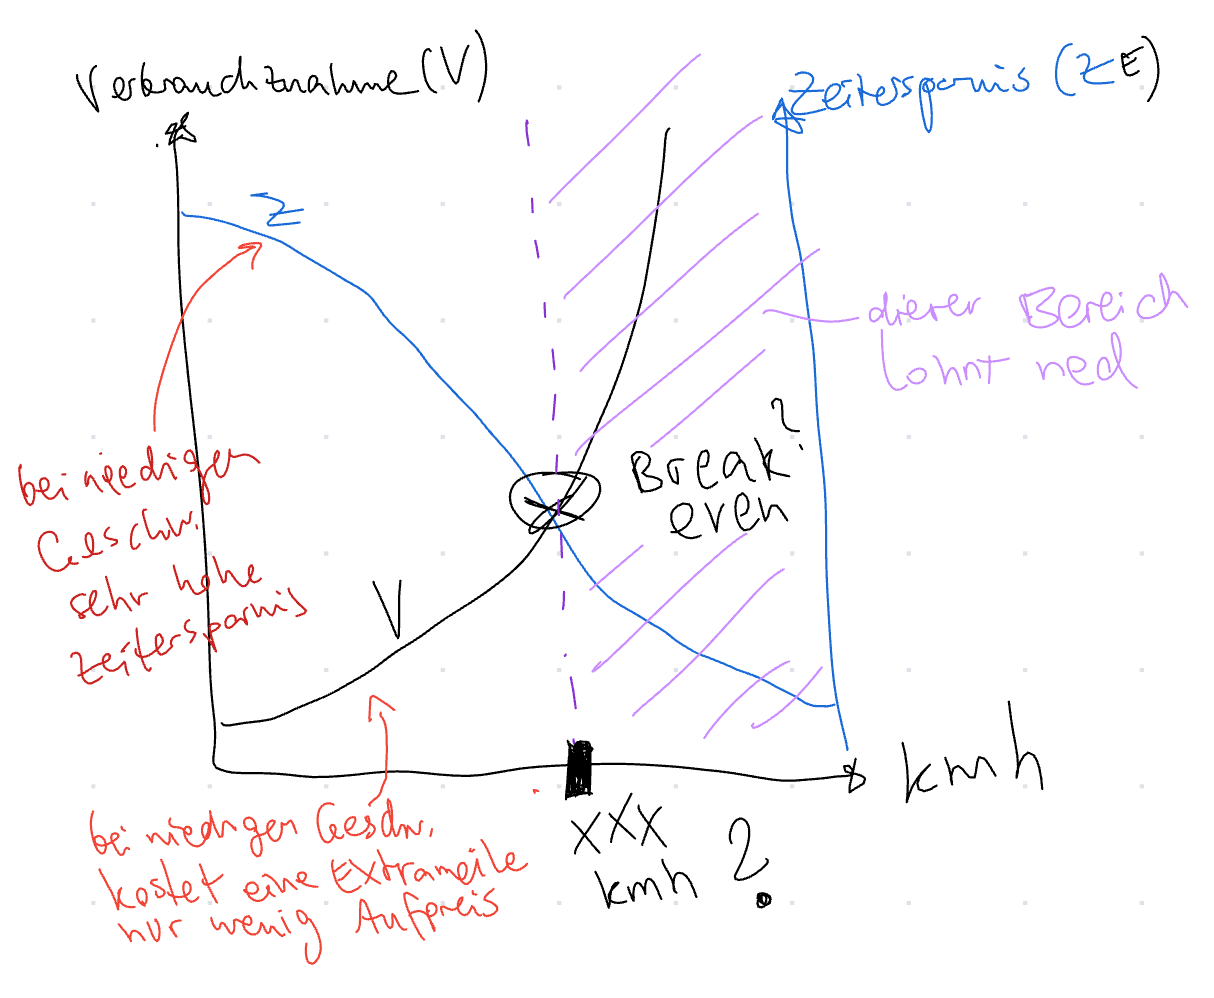 Verbrauchznahme (V)
Zeitersparnis (ZE)
Z
dieser Bereich
lohnt ned
Break?
even
bei niedigen
Geschw.
sehr hohe
Zeitersparnis
V
kmh
XXX
kmh ?
bei niedrigen Geschw.
kostet eine Extrameile
nur wenig Aufpreis